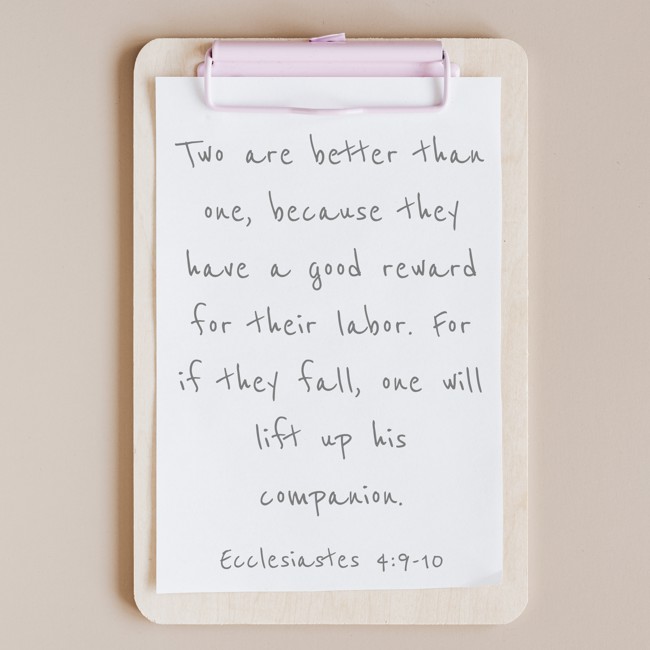 Two are better than
one, because they
have a good reward
for their labor. For
if they fall, one will
lift up his
companion.
Ecclesiastes 4:9-10